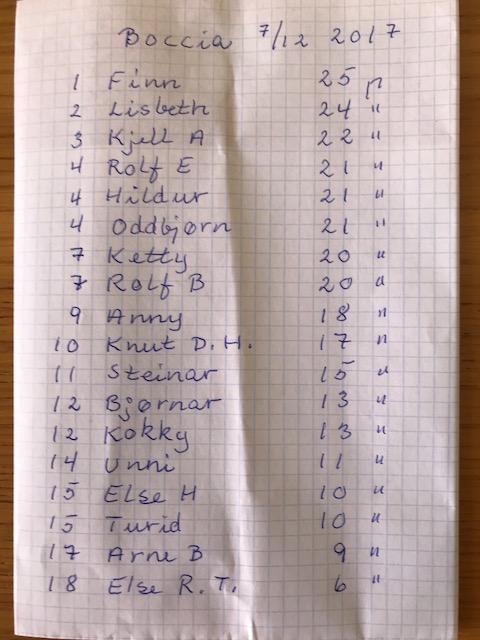 Boccia 7/12 2017
1 Finn 25 p
2 Lisbeth 24 "
3 Kjell A 22 "
4 Rolf E 21 "
4 Hildur 21 "
4 Oddbjørn 21 "
7 Ketty 20 "
7 Rolf B 20 "
9 Anny 18 "
10 Knut D. H. 17 "
11 Steinar 15 "
12 Bjørnar 13 "
12 Kokky 13 "
14 Unni 11 "
15 Else H 10 "
15 Turid 10 "
17 Arne B 9 "
18 Else R. T. 6 "